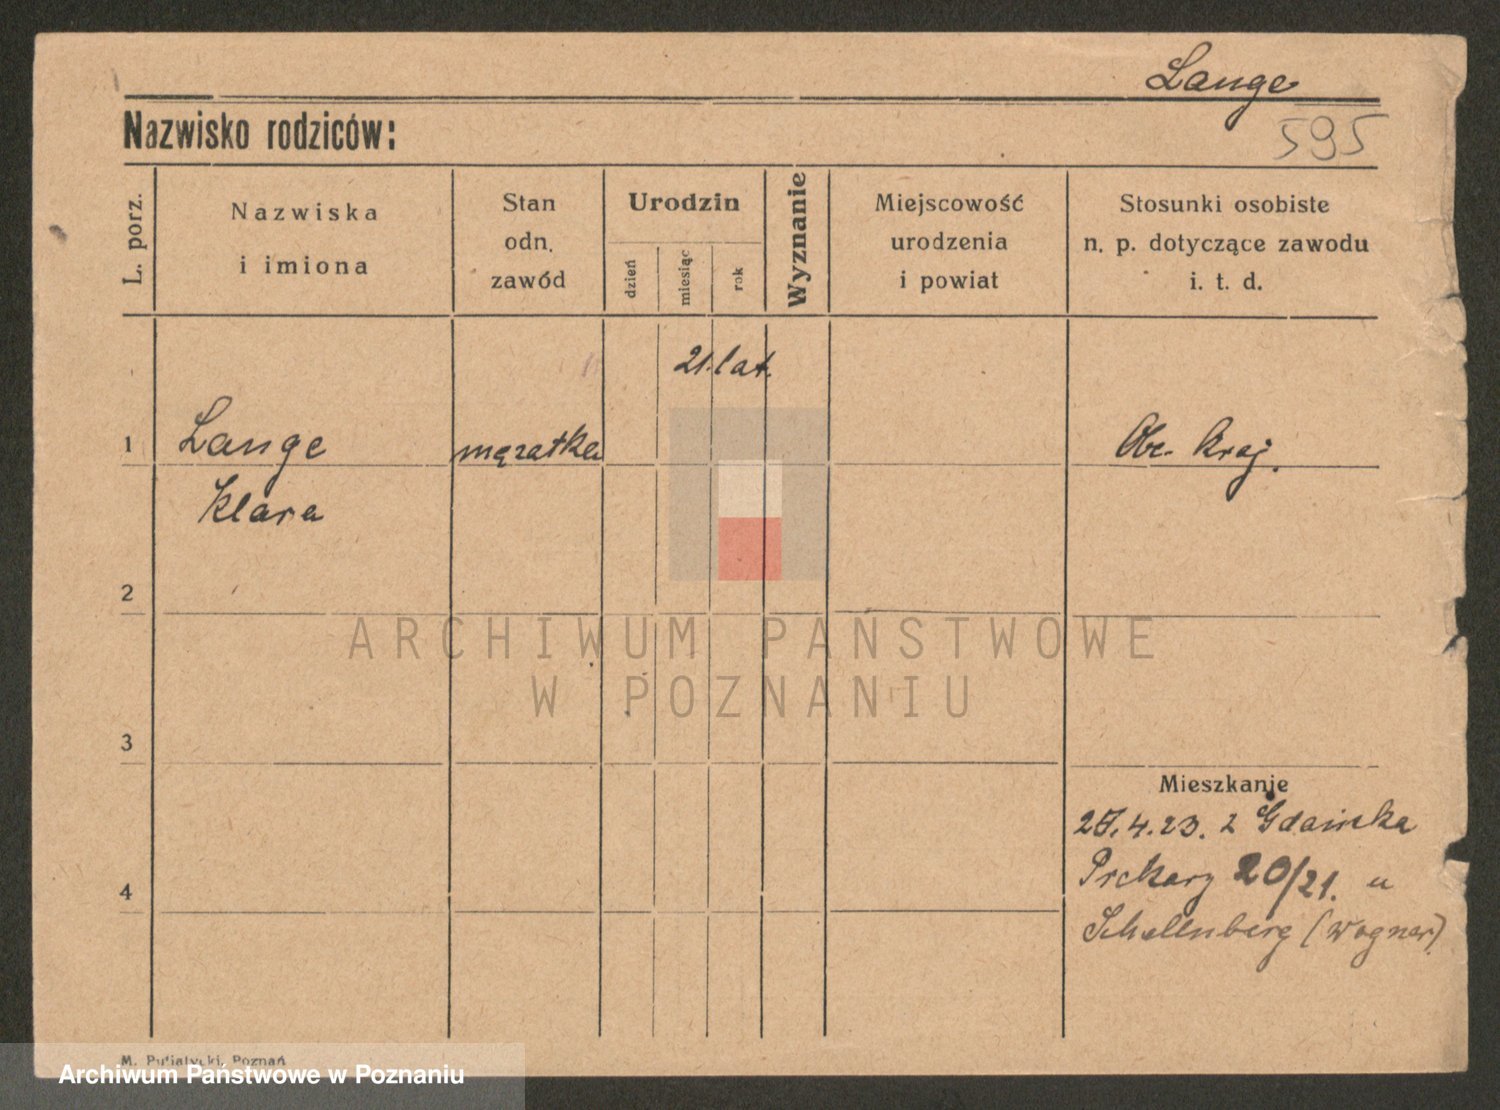 Lange
Nazwisko rodziców:
595
L. porz.
Nazwiska
i imiona
Stan
odn.
zawód
Urodzin
dzień
miesiąc
rok
Wyznanie
Miejscowość
urodzenia
i powiat
Stosunki osobiste
n. p. dotyczące zawodu
i. t. d.
21. lat.
1
Lange
mężatka
Obc. kraj.
Klara
2
ARCHIWUM PAŃSTWOWE
W POZNANIU
3
Mieszkanie
4.23. z Gdańska
Piekary 20/21. u
4
Schellenberg (Wagner)
M. Putiatycki, Poznań
Archiwum Państwowe w Poznaniu